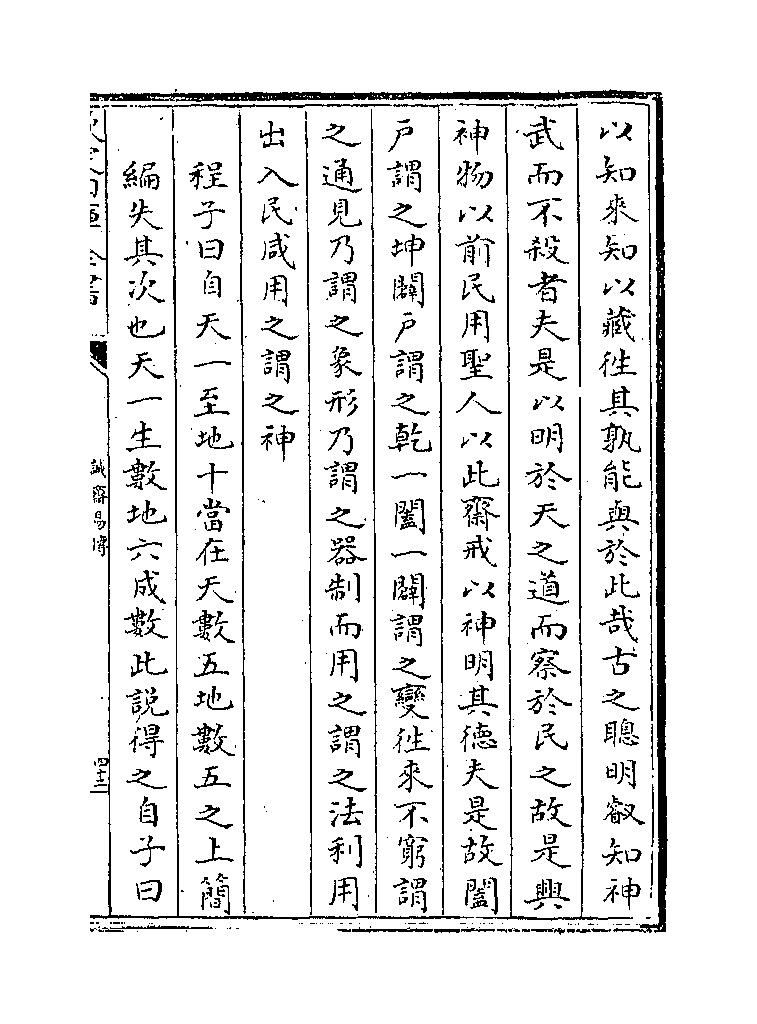 以知來知以藏徃其孰能與於此哉古之聰明叡知神
武而不殺者夫是以明於天之道而察於民之故是興
神物以前民用聖人以此齋戒以神明其徳夫是故闔
戸謂之坤闢戸謂之乾一闔一闢謂之變徃來不窮謂
之通見乃謂之象形乃謂之器制而用之謂之法利用
出入民咸用之謂之神
程子曰自天一至地十當在天數五地數五之上簡
編失其次也天一生數地六成數此説得之自子曰
誠齋易傳
四十三